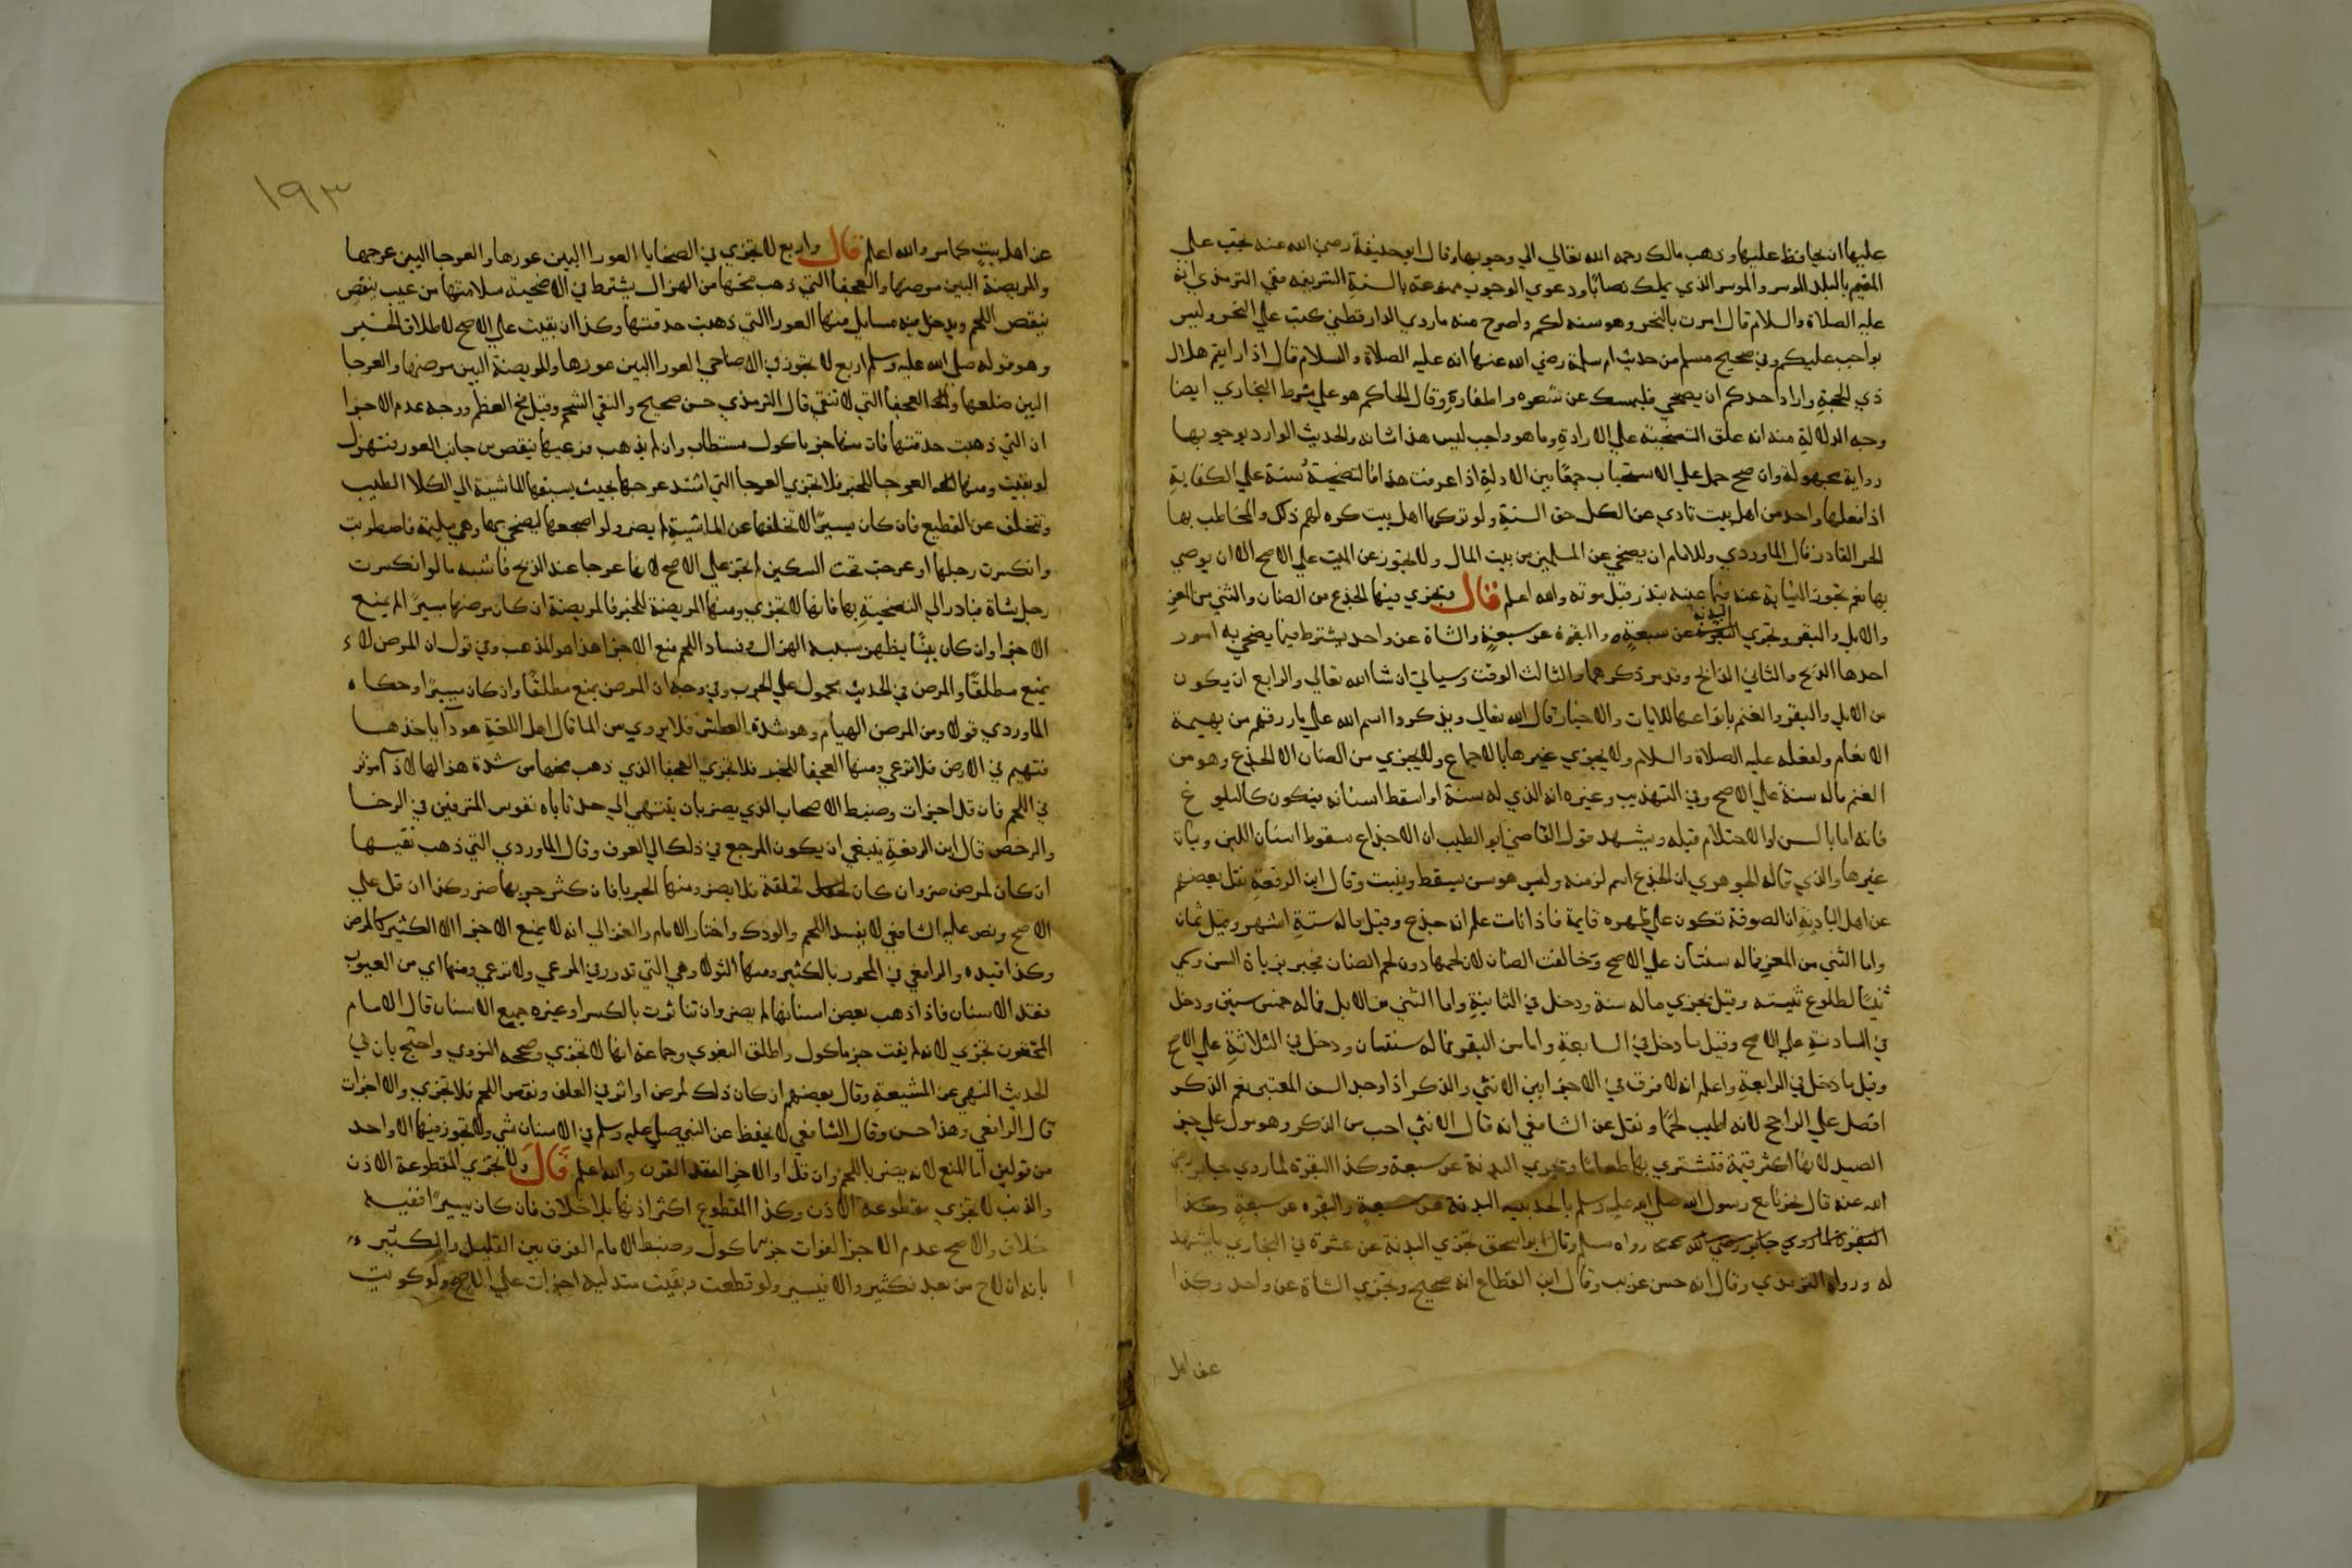 عليها ان يحافظ عليها وذهب مالك رحمه الله تعالي الي وجوبها وقال ابو حنيفة رضي الله عنه تجب علي
المقيم بالبلد الموسر والموسر الذي يملك نصابا ودعوي الوجوب ممنوعة بالسنة الشريفه ففي الترمذي انه
عليه الصلاة والسلام قال امرت بالنحر وهو سنه لكم واصرح منه ماروي الدارقطني كتب علي النحر وليس
بواجب عليكم وفي صحيح مسلم من حديث ام سلمة رضي الله عنها انه عليه الصلاة والسلام قال اذا رايتم هلال
ذي الحجة واراد احدكم ان يضحي فليمسك عن شعره واظفاره وقال الحاكم هو علي شرط البخاري ايضا
وجه الدلالة منه انه علق التضحية علي الارادة وما هو واجب ليس هذا شانه والحديث الوارد بوجوبها
رواية مجهولة وان صح حمل علي الاستحباب جمعا بين الادلة اذا عرفت هذا فالتضحية سنة علي الكفاية
اذا فعلها واحد من اهل بيت تادي عن الكل حق السنة ولو تركها اهل بيت كره لهم ذلك والمخاطب بها
الحر القادر قال الماوردي وللامام ان يضحي عن المسلمين من بيت المال ولا تجوز عن الميت علي الاصح الا ان يوصي
بها نعم تجوز النيابة عنه فيما عينه بنذر قبل موته والله اعلم قال ويجزي فيها الجذع من الضان والثني من المعز
والابل والبقر وتجزي البدنه عن سبعة والبقرة عن سبعة والشاة عن واحد يشترط فيما يضحي به امور
احدها الذبح والثاني الذابح وقد مر ذكرهما والثالث الوقت وسياتي ان شا الله تعالي والرابع ان يكون
من الابل والبقر والغنم بانواعها للايات والاخبار قال الله تعالي ويذكروا اسم الله علي ما رزقهم من بهيمة
الانعام ولفعله عليه الصلاة والسلام ولا يجزي غيرها بالاجماع ولا يجزي من الضان الا الجذع وهو من
الغنم ماله سنة علي الاصح وفي التهذيب وغيره انه الذي له سنة او اسقط اسنانه فيكون كالبلوغ
فانه اما بالسن او الاحتلام قبله ويشهد قول القاضي ابو الطيب ان الاجذاع سقوط اسنان اللبن ونبات
غيرها والذي قاله الجوهري ان الجذع اسم لزمنه وليس هو سن يسقط وينبت وقال ابن الرفعة نقل بعضهم
عن اهل البادية ان الصوفة تكون علي ظهره قايمة فاذا نامت علم انه جذع وقيل ماله ستة اشهر وقيل ثمان
واما الثني من المعز فماله سنتان علي الاصح وخالفت الضان لان لحمها دون لحم الضان فجبر بزيادة السن وسمي
ثنيا لطلوع ثنيته وقيل يجزي ماله سنة ودخل في الثانية واما الثني من الابل فماله خمس سنين ودخل
في السادسة علي الاصح وقيل ما دخل في السابعة واما من البقر فما له سنتان ودخل في الثلاثة علي الاصح
وقيل ما دخل في الرابعة واعلم انه لا فرق في الاجزا بين الانثي والذكر اذا وجد السن المعتبر نعم الذكر
افضل علي الراجح لانه اطيب لحما ونقل عن الشافعي انه قال الانثي احب من الذكر وهو مول علي جز
الصيد لانها اكثر قيمة فتشتري بها طعاما وتجزي البدنة عن سبعة وكذا البقره لماروي جابر رضي
الله عنه قال نحرنا مع رسول الله صلي الله عليه وسلم بالحديبيه البدنة عن سبعة والبقره عن سبعة وكذا
رواه مسلم وقال ابو اسحق تجزي البدنة عن عشرة في البخاري ما يشهد
له ورواه الترمذي وقال انه حسن غريب وقال ابن القطاع انه صحيح وتجزي الشاة عن واحد وكذا
عن اهل
١٩٣
عن اهل بيت كما مر والله اعلم قال واربع لا تجزي في الضحايا العورا البين عورها والعرجا البين عرجها
والمريضة البين مرضها والعجفا التي ذهب مخها من الهزال يشترط في الاضحية سلامتها من عيب ينقص
ينقص اللحم ويدخل فيه مسايل منها العورا التي ذهبت حدقتها وكذا ان بقيت علي الاصح لاطلاق الخبر
وهو قوله صلي الله عليه وسلم اربع لا تجوز في الاضاحي العورا البين عورها والمريضة البين مرضها والعرجا
البين ضلعها والعجفا التي لا تنقي قال الترمذي حسن صحيح والنقي الشحم وقيل مخ العظم ووجه عدم الاجزا
ان التي ذهبت حدقتها فات منها جز ماكول مستطاب وان لم يذهب فرعيها ينقص من جانب العور فتهزل
لو بقيت ومنها العرجا للخبر فلا تجزي العرجا التي اشتد عرجها بحيث يسبقها الماشية الي الكلا الطيب
وتتخلف عن القطيع فان كان يسيرا لا تخلفها عن الماشية لم يضر ولو اضجعها ليضحي بها وهي سليمة فاضطربت
وانكسرت رجلها او عرجت تحت السكين لم تجز علي الاصح لانها عرجا عند الذبح فاشبه ما لو انكسرت
رجل شاة فبادر الي التضحية بها فانها لا تجزي ومنها المريضة للخبر فالمريضة ان كان مرضها يسيرا لم يمنع
الاجزا وان كان بينا يظهر بسببه الهزال وفساد اللحم منع الاجزا هذا هو المذهب وفي قول ان المرض لا
يمنع مطلقا والمرض في الحديث محمول علي الجرب وفي وجه ان المرض يمنع مطلقا وان كان يسيرا وحكاه
الماوردي قولا ومن المرض الهيام وهو شدة العطش فلا يروي من الما قال اهل اللغة هو دآ ياخذها
فتهيم في الارض فلا ترعي ومنها العجفا للخبر فلا تجزي العجفا الذي ذهب مخها من شدة هزالها لانه مؤثر
في اللحم فان قل اجزات وضبط الاصحاب الذي يضر بان ينتهي الي حد تاباه نفوس المترفين في الرخا
والرخص قال ابن الرفعة ينبغي ان يكون المرجع في ذلك الي العرف وقال الماوردي التي ذهب نقيها
ان كان لمرض ضر وان كان لخلقة فلا يضر ومنها الجربا فان كثر جربها ضر وكذا ان قل علي
الاصح ونص عليه الشافعي لانه يفسد اللحم والودك واختار الامام والغزالي انه لا يمنع الاجزا الا الكثير كالمرض
وكذا قيده والرافعي في المحرر بالكثير ومنها الثولا وهي التي تدور في المرعي ولا ترعي ومنها اي من العيوب
فقد الاسنان فاذا ذهب بعض اسنانها لم يضر وان تناثرت بالكسر او غيره جميع الاسنان قال الامام
المحققون تجزي لانه لم يفت جز ماكول واطلق البغوي وجماعة انها لا تجزي وصححه النووي واحتج بان في
الحديث النهي عن المشيعة وقال بعضهم ان كان ذلك لمرض او اثر في العلف ونقص اللحم فلا تجزي والا اجزات
قال الرافعي وهذا حسن وقال الشافعي لا يحفظ عن النبي صلي عليه وسلم في الاسنان شي ولا يجوز فيها الا واحد
من قولين اما المنع لانه يضر باللحم وان قل او الاجز الفقد القرن والله اعلم قال ولا تجزي المقطوعة الاذن
والذنب لا تجزي مقطوعة الاذن وكذا المقطوع اكثر اذنها بلا خلاف فان كان يسيرا ففيه
خلاف والاصح عدم الاجزا لفوات جز ماكول وضبط الامام الفرق بين القليل والكثير
بانه ان لاح من بعد فكثير والا فيسير ولو قطعت وبقيت متدليه اجزات علي الاصح ولو كويت